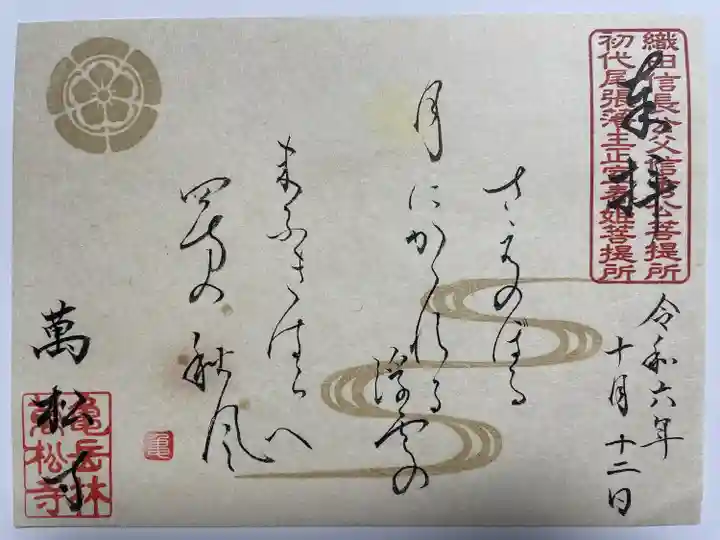 織田信長公父信秀公菩提所
初代尾張藩主正室春姫菩提所
奉拝
令和六年
十月十二日
さえのぼる
月にかゝれる
浮雲の
末ふきはらへ
四方の秋風
萬松寺
亀岳林
萬松寺